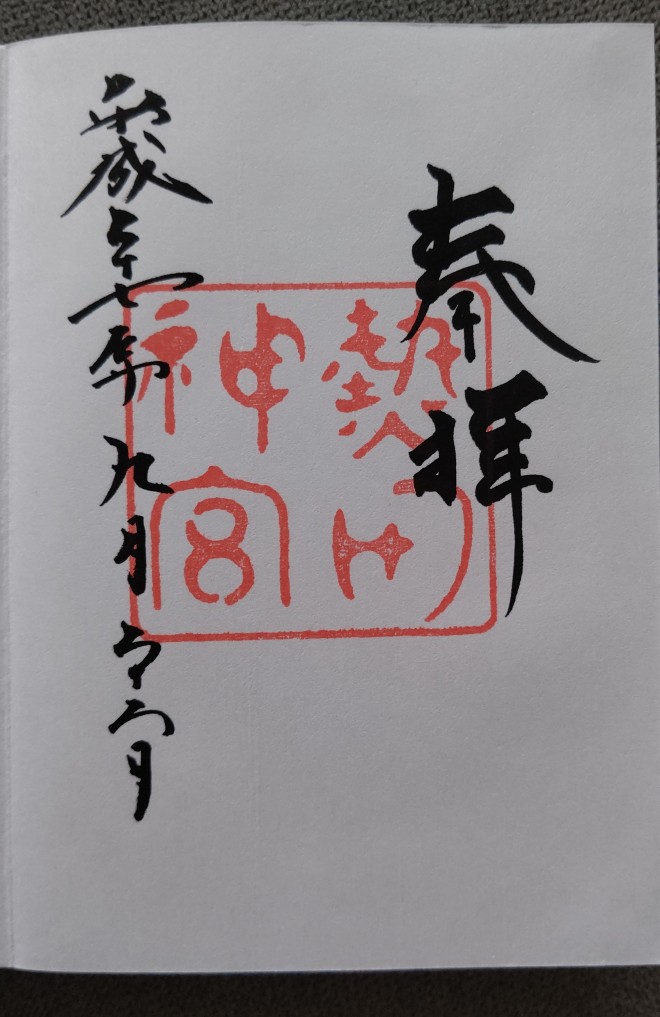 奉拝
熱田神宮
平成二十七年九月二十二日